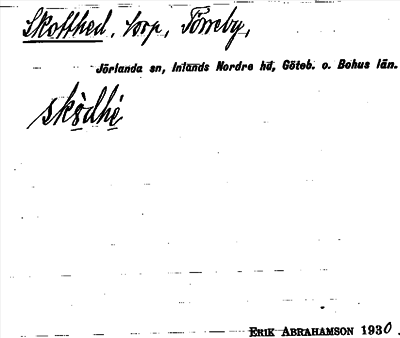 Skotthed, torp, Törreby,
Jörlanda sn, Inlands Nordre hd, Göteb. o. Bohus län.
skòdhé
ERIK ABRAHAMSON 1930.